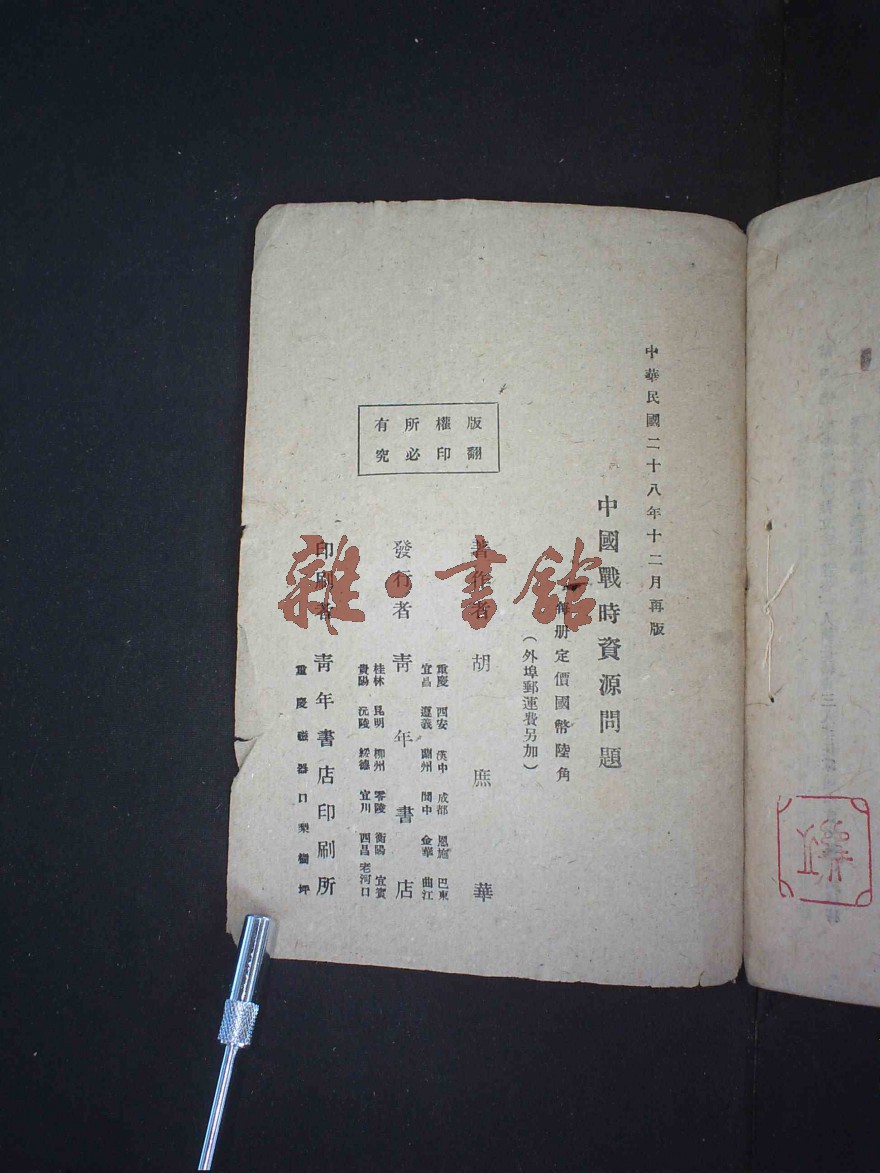 中華民國二十八年十二月再版
中國戰時資源問題
每册定價國幣陸角
（外埠郵運費另加）
版權所有
翻印必究
著作者 胡庶華
發行者 青年書店
重慶 西安 漢中 成都 恩施 巴東
宜昌 遵義 蘭州 閬中 金華 曲江
桂林 昆明 柳州 零陵 衡陽 宜賓
貴陽 沅陵 綏德 宜川 西昌 老河口
印刷者 青年書店印刷所
重慶磁器口梨樹坪
雜·書館